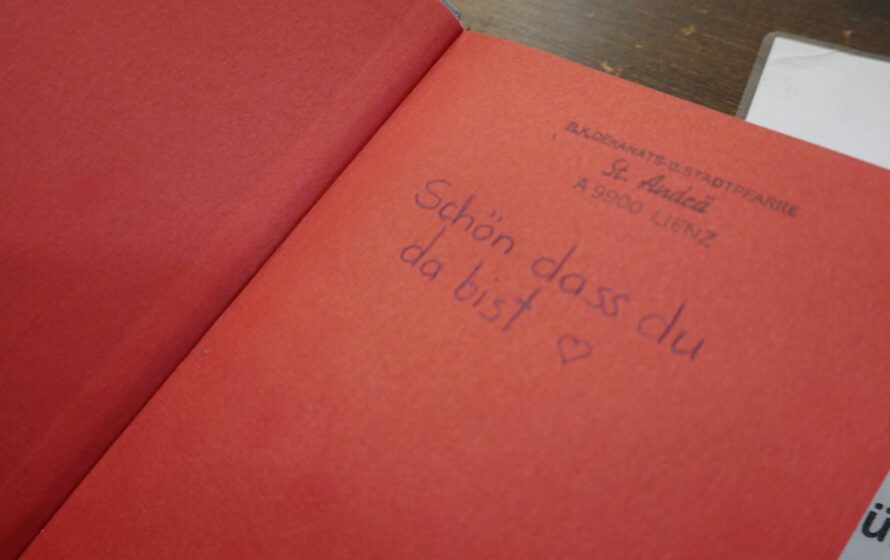 B.K. DEKANATS- U. STADTPFARRE
St. Andrä
A 9900 LIENZ
Schön dass du
da bist ♡